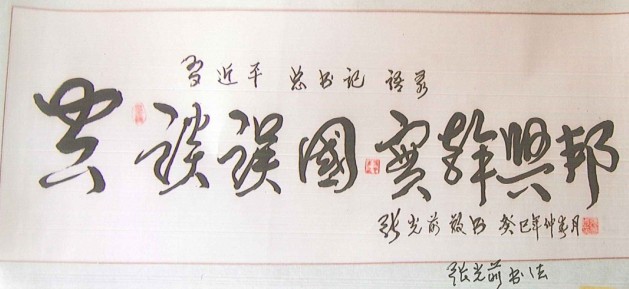 习近平 总书记 语录
空談誤國實幹興邦
张光前敬书 癸巳年仲春月
张光前书法